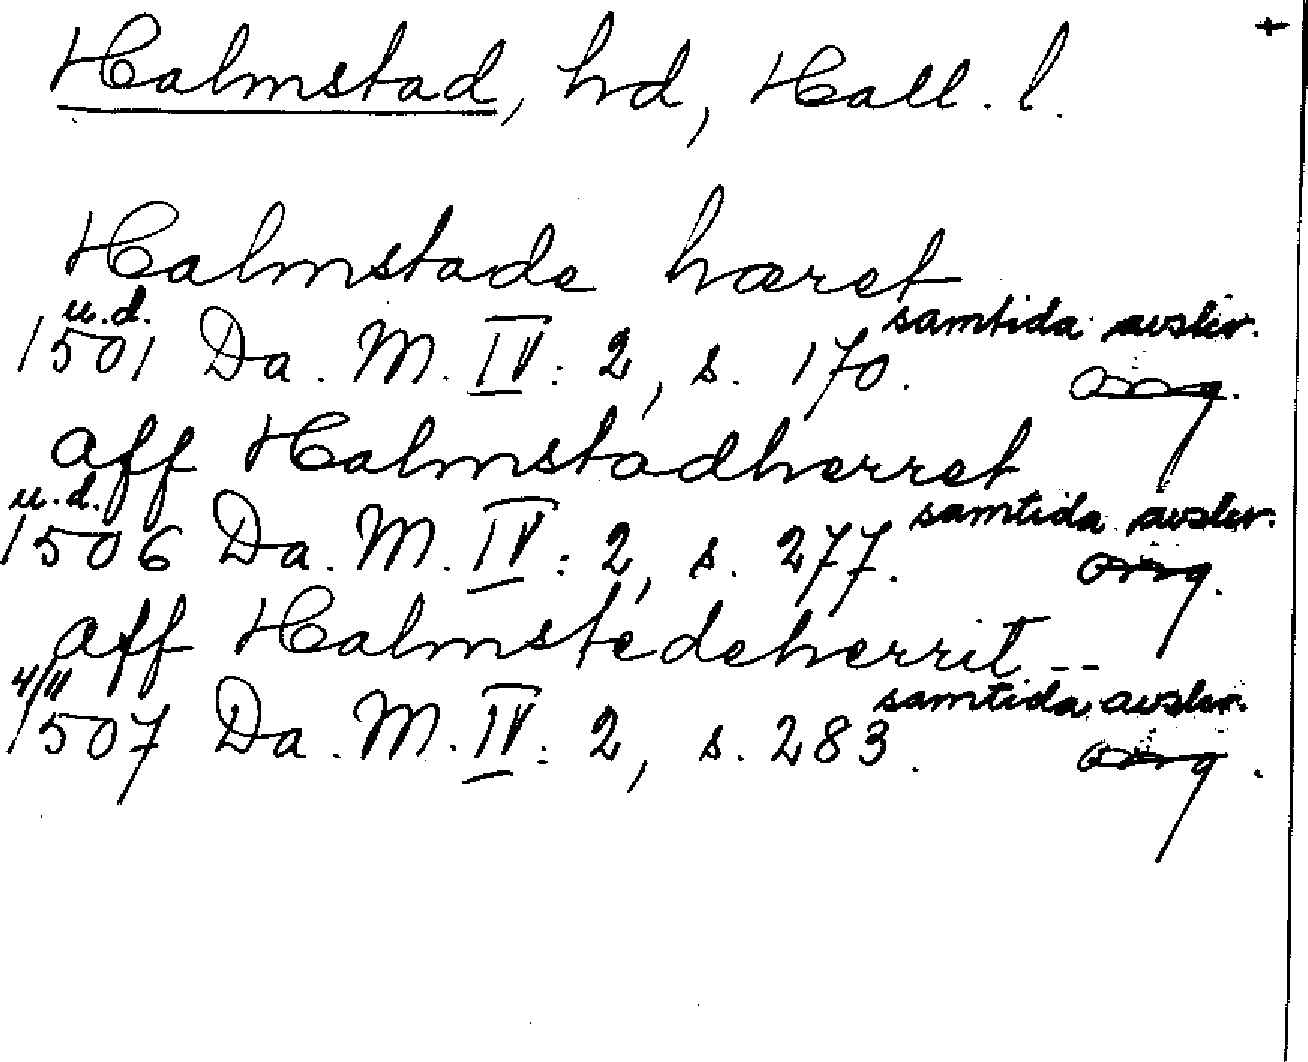 +
Halmstad, hd, Hall. l.
Halmstade hæret
u.d. samtida avskr.
1501 Da. M. IV: 2, s. 170. org.
aff Halmstadherret
u.d. samtida avskr.
1506 Da. M. IV: 2, s. 277. org.
aff Halmstedeherrit --
4/11 samtida avskr.
1507 Da. M. IV: 2, s. 283. org.